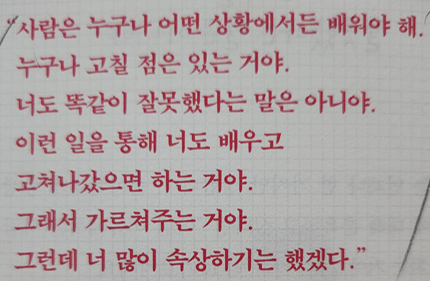 “사람은 누구나 어떤 상황에서든 배워야 해.
누구나 고칠 점은 있는 거야.
너도 똑같이 잘못했다는 말은 아니야.
이런 일을 통해 너도 배우고
고쳐나갔으면 하는 거야.
그래서 가르쳐주는 거야.
그런데 너 많이 속상하기는 했겠다.”